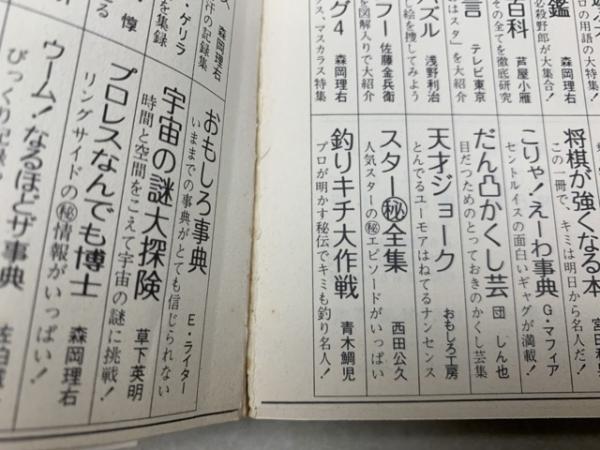 鑑
必殺野郎が大集合!
森岡理右
百科
その全てを徹底研究
芦屋小雁
言
はスタ」を大紹介
テレビ東京
パズル
し絵を捜してみよう
浅野利治
フー
を図解入りで大紹介
佐藤金兵衛
グ4
ス、マスカラス特集
森岡理右
将棋が強くなる本
この一冊で、キミは明日から名人だ!
こりゃ!えーわ事典
セントルイスの面白いギャグが満載!
G・マフィア
だん凸かくし芸
目だつためのとっておきのかくし芸集
団 しん也
天才ジョーク
とんでるユーモアはねてるナンセンス
おもしろ工房
スター㊙全集
人気スターの㊙エピソードがいっぱい
西田公久
釣りキチ大作戦
プロが明かす秘伝でキミも釣り名人!
青木鯛児
汗の記録集
森岡理右
を集録
・ゲリラ
惇
おもしろ事典
いままでの事典がとても信じられない
E・ライター
宇宙の謎大探険
時間と空間をこえて宇宙の謎に挑戦!
草下英明
プロレスなんでも博士
リングサイドの㊙情報がいっぱい!
森岡理右
ウーム!なるほどザ事典
びっくり記録